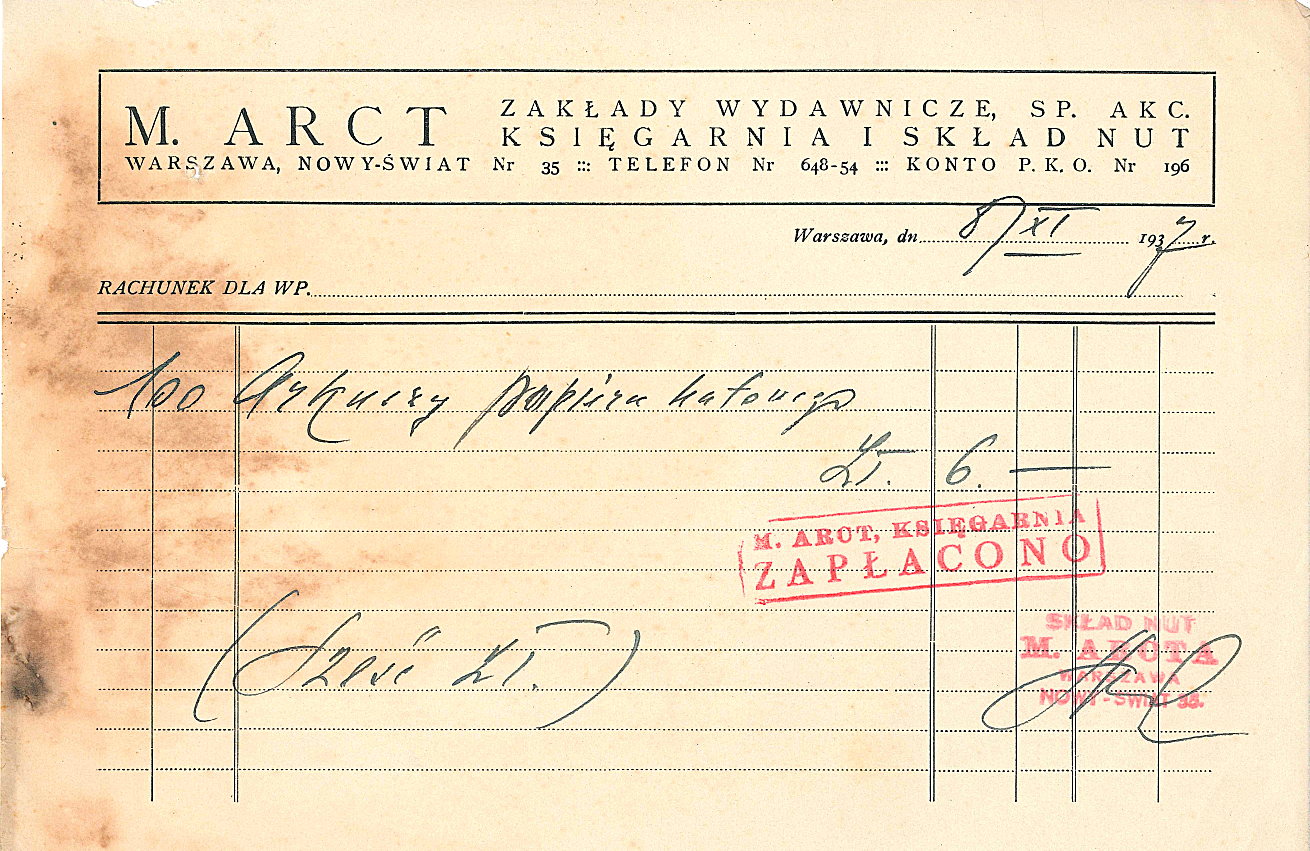 M. ARCT
ZAKŁADY WYDAWNICZE, SP. AKC.
KSIĘGARNIA I SKŁAD NUT
WARSZAWA, NOWY-ŚWIAT Nr 35 ::: TELEFON Nr 648-54 ::: KONTO P. K. O. Nr 196
Warszawa, dn. 8/XI 1937 r.
RACHUNEK DLA WP.
100 Arkuszy papieru nutowego
Zł. 6.—
M. ARCT, KSIĘGARNIA
ZAPŁACONO
(Sześć Zł.)
SKŁAD NUT
M. ARCTA
WARSZAWA
NOWY-ŚWIAT 35.